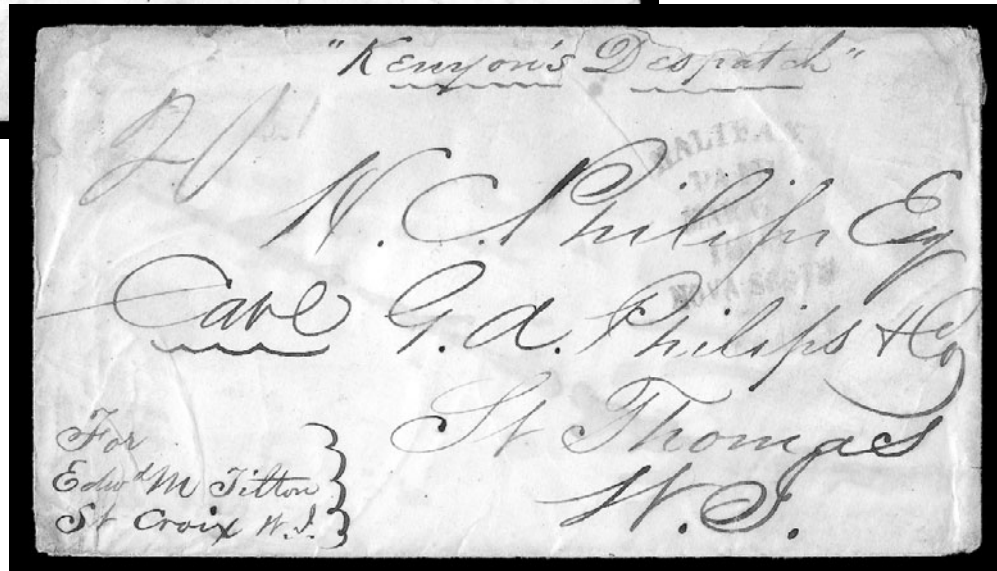 "Kenyon's Despatch"
HALIFAX
PAID
NOVA SCOTIA
N. C. Philips Esq
Care G. A. Philips & Co
St Thomas
W. I.
For
Edwd M Tilton
St Croix W. I.